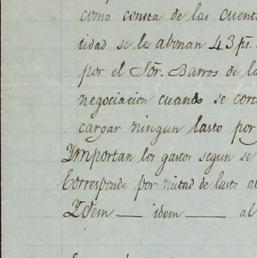 como consta de las cuent
tidad se le abonan 43 ps.
por el Sõr. Barros de l
negociacion cuando se cort
cargar ningun lasto por
Ymportan los gastos segun se
Corresponde por mitad de lasto a
Ydem — idem — al